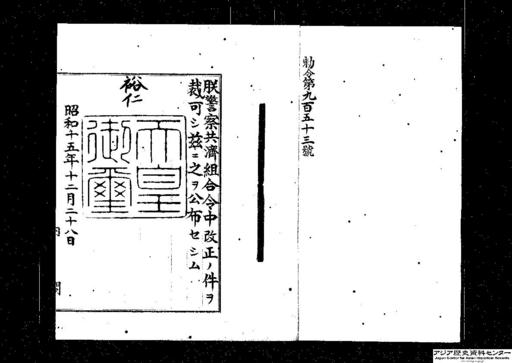 勅令第九百五十三號
朕警察共濟組合令中改正ノ件ヲ
裁可シ玆ニ之ヲ公布セシム
裕仁
天皇
御璽
昭和十五年十二月二十八日
内 閣
アジア歴史資料センター
Japan Center for Asian Historical Records